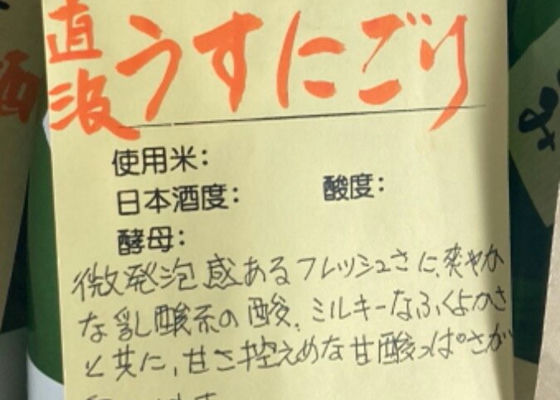 直汲
うすにごり
使用米:
日本酒度: 酸度:
酵母:
微発泡感あるフレッシュさに、爽やか
な乳酸系の酸、ミルキーなふくよかさ
と共に、甘さ控えめな甘酸っぱさが